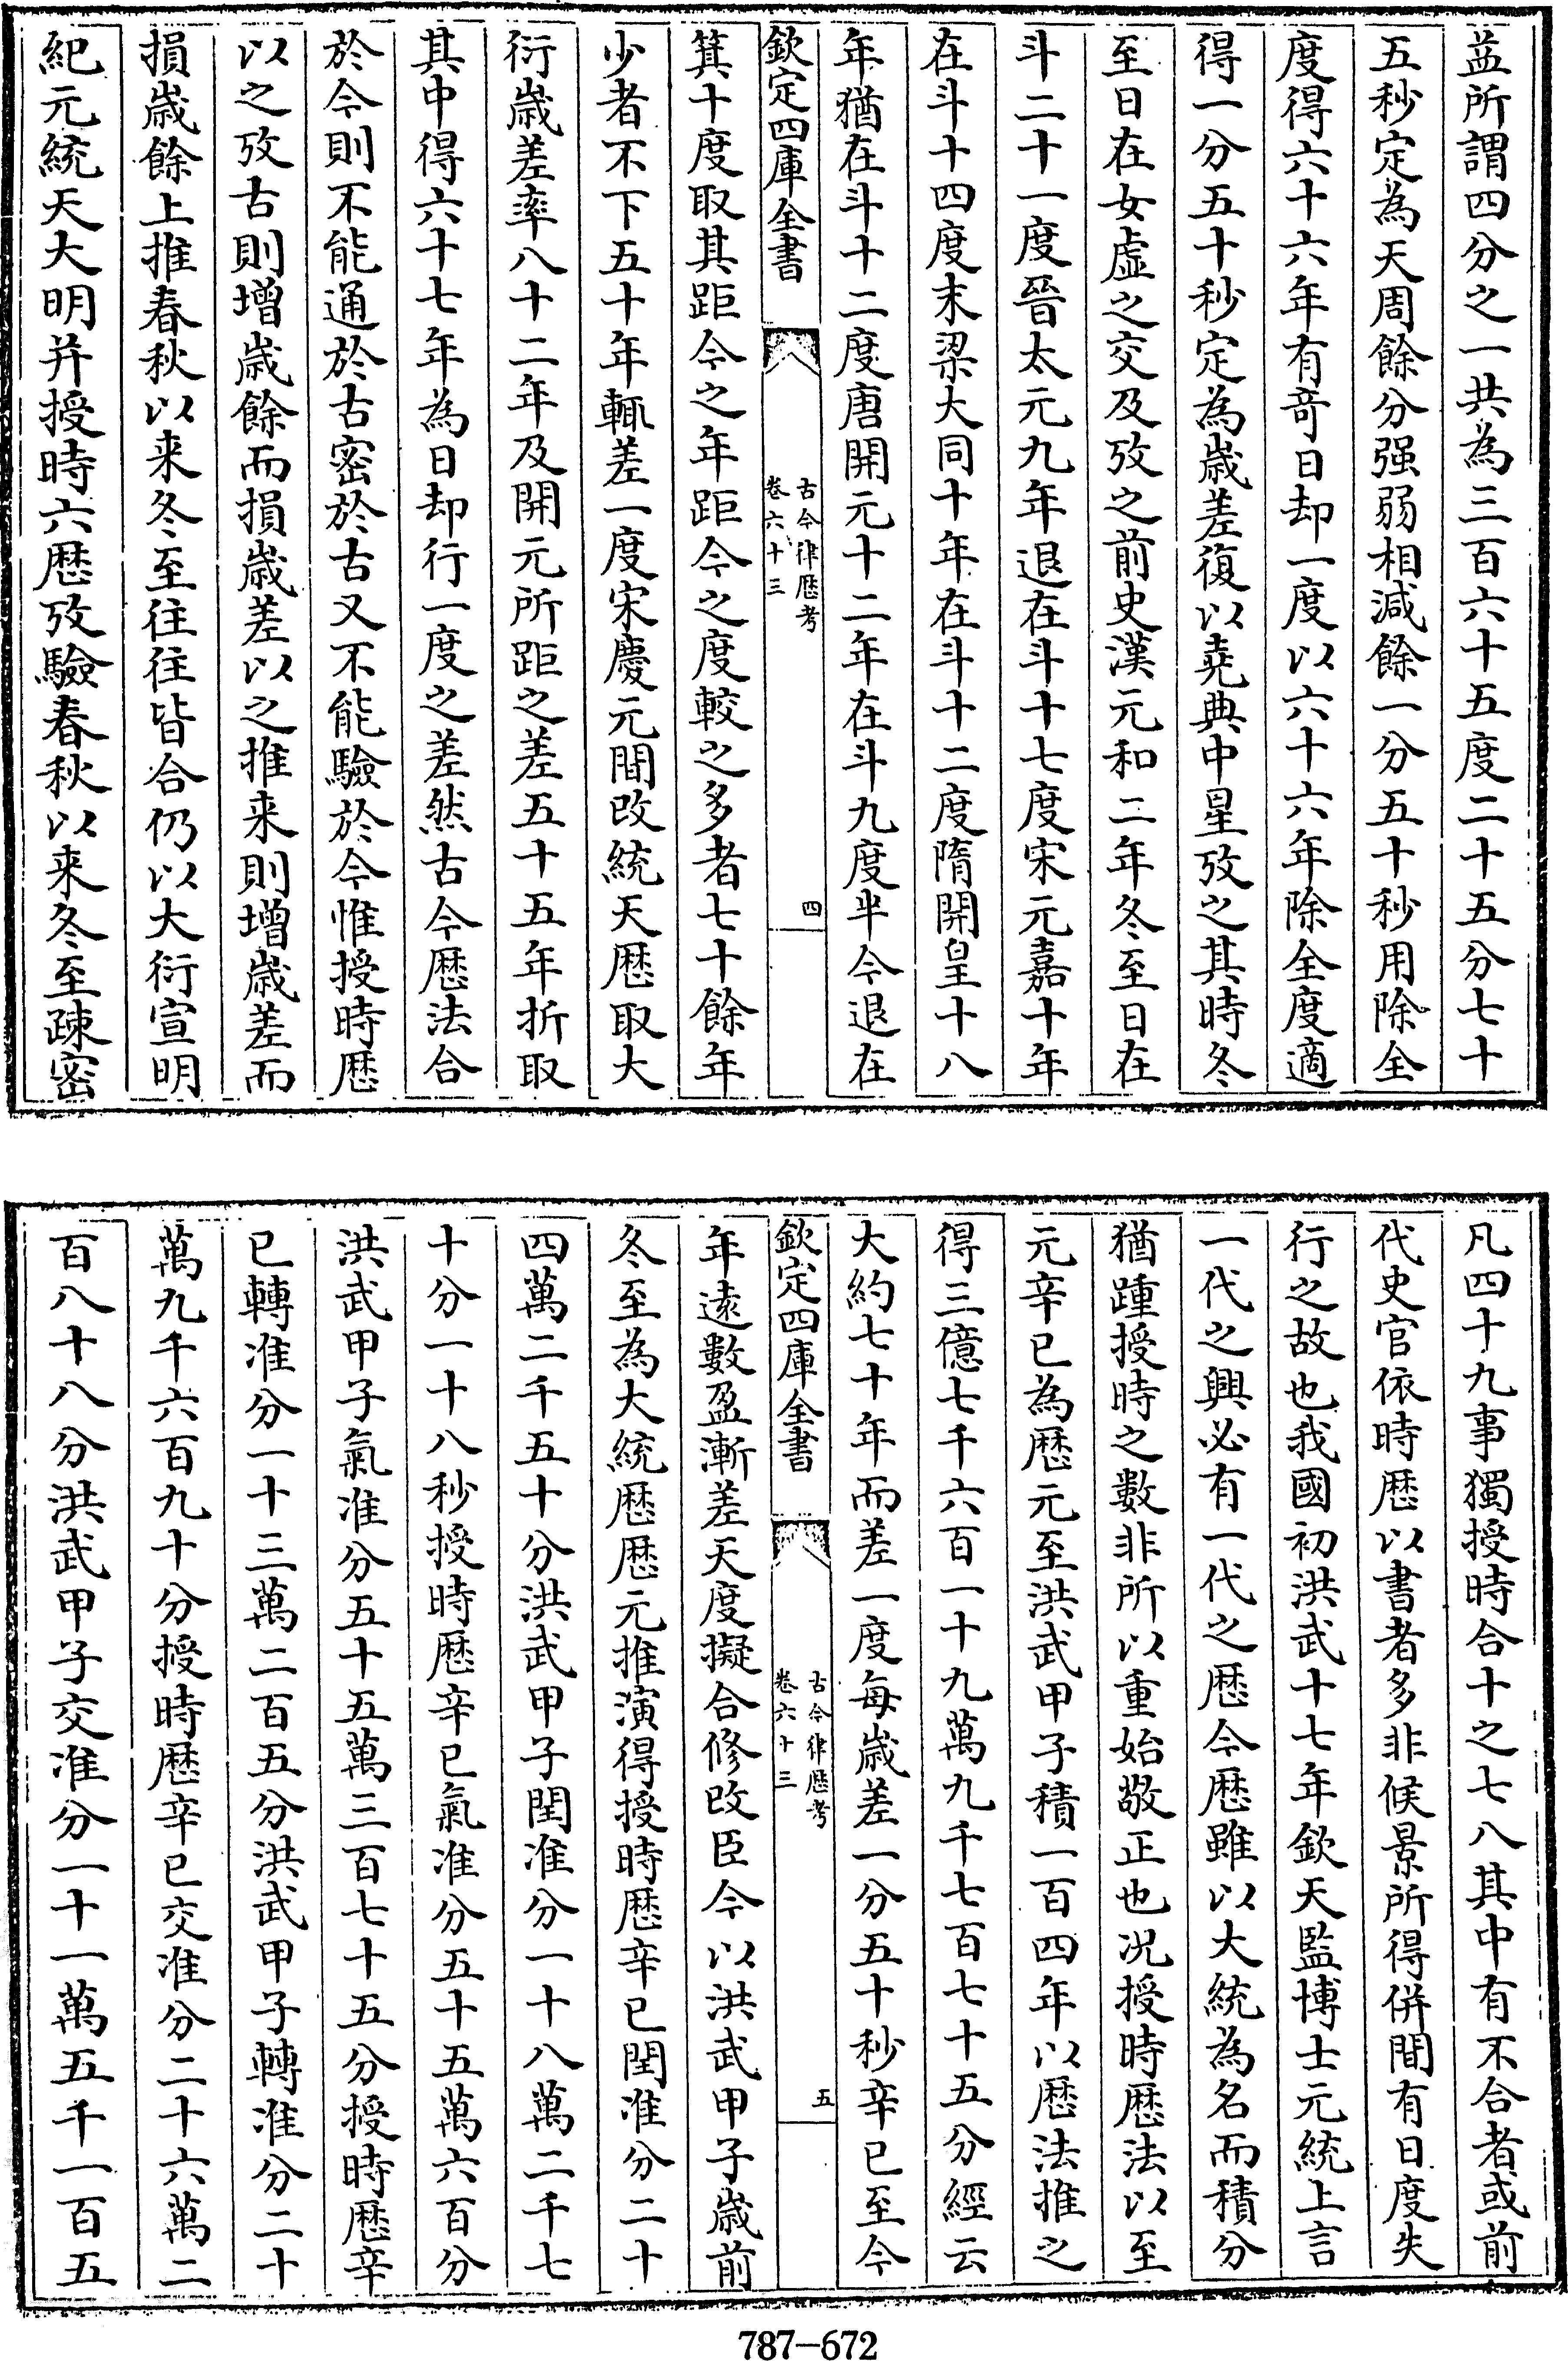 益所謂四分之一共為三百六十五度二十五分七十
五秒定為天周餘分强弱相減餘一分五十秒用除全
度得六十六年有竒日却一度以六十六年除全度適
得一分五十秒定為歳差復以堯典中星攷之其時冬
至日在女虛之交及攷之前史漢元和二年冬至日在
斗二十一度晉太元九年退在斗十七度宋元嘉十年
在斗十四度末梁大同十年在斗十二度隋開皇十八
年猶在斗十二度唐開元十二年在斗九度半今退在
欽定四庫全書
古今律歴考
卷六十三
四
箕十度取其距今之年距今之度較之多者七十餘年
少者不下五十年輒差一度宋慶元間改統天歴取大
衍歳差率八十二年及開元所距之差五十五年折取
其中得六十七年為日却行一度之差然古今歴法合
於今則不能通於古密於古又不能驗於今惟授時歴
以之攷古則增歳餘而損歳差以之推来則增歳差而
損歳餘上推春秋以来冬至往往皆合仍以大衍宣明
紀元統天大明并授時六歴攷驗春秋以来冬至疎密
凡四十九事獨授時合十之七八其中有不合者或前
代史官依時歴以書者多非候景所得併間有日度失
行之故也我國初洪武十七年欽天監博士元統上言
一代之興必有一代之歴今歴雖以大統為名而積分
猶踵授時之數非所以重始敬正也况授時歴法以至
元辛已為歴元至洪武甲子積一百四年以歴法推之
得三億七千六百一十九萬九千七百七十五分經云
大約七十年而差一度每歳差一分五十秒辛已至今
欽定四庫全書
古今律歴考
卷六十三
五
年遠數盈漸差天度擬合修改臣今以洪武甲子歳前
冬至為大統歴歴元推演得授時歴辛已閏准分二十
四萬二千五十分洪武甲子閏准分一十八萬二千七
十分一十八秒授時歴辛已氣准分五十五萬六百分
洪武甲子氣准分五十五萬三百七十五分授時歴辛
已轉准分一十三萬二百五分洪武甲子轉准分二十
萬九千六百九十分授時歴辛已交准分二十六萬二
百八十八分洪武甲子交准分一十一萬五千一百五
787-672